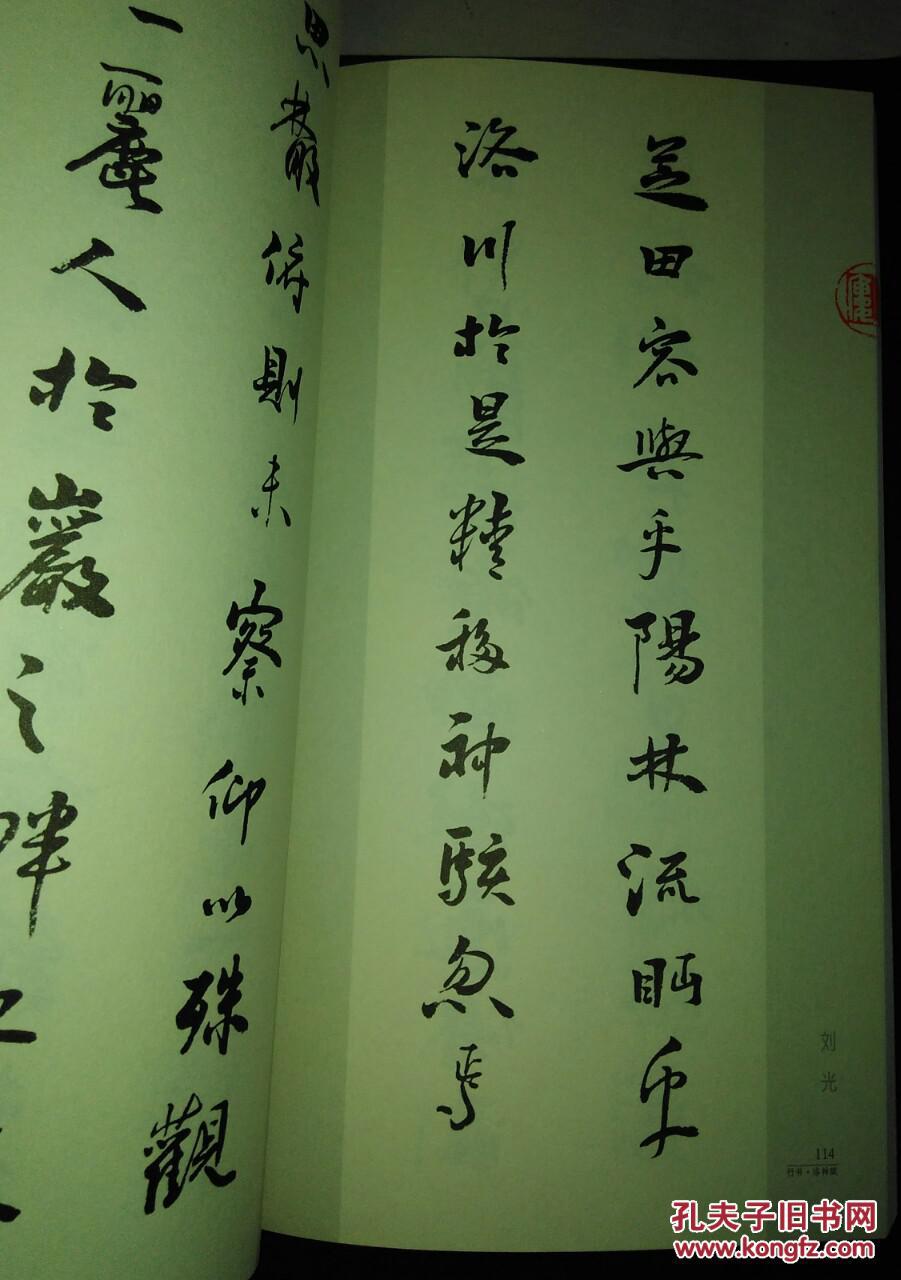 芝田容與乎陽林流眄乎
洛川於是精移神駭忽焉
思散俯則未察仰以殊觀
一麗人於巖之畔
刘光
114
行书·洛神赋
孔夫子旧书网
www.kongfz.com